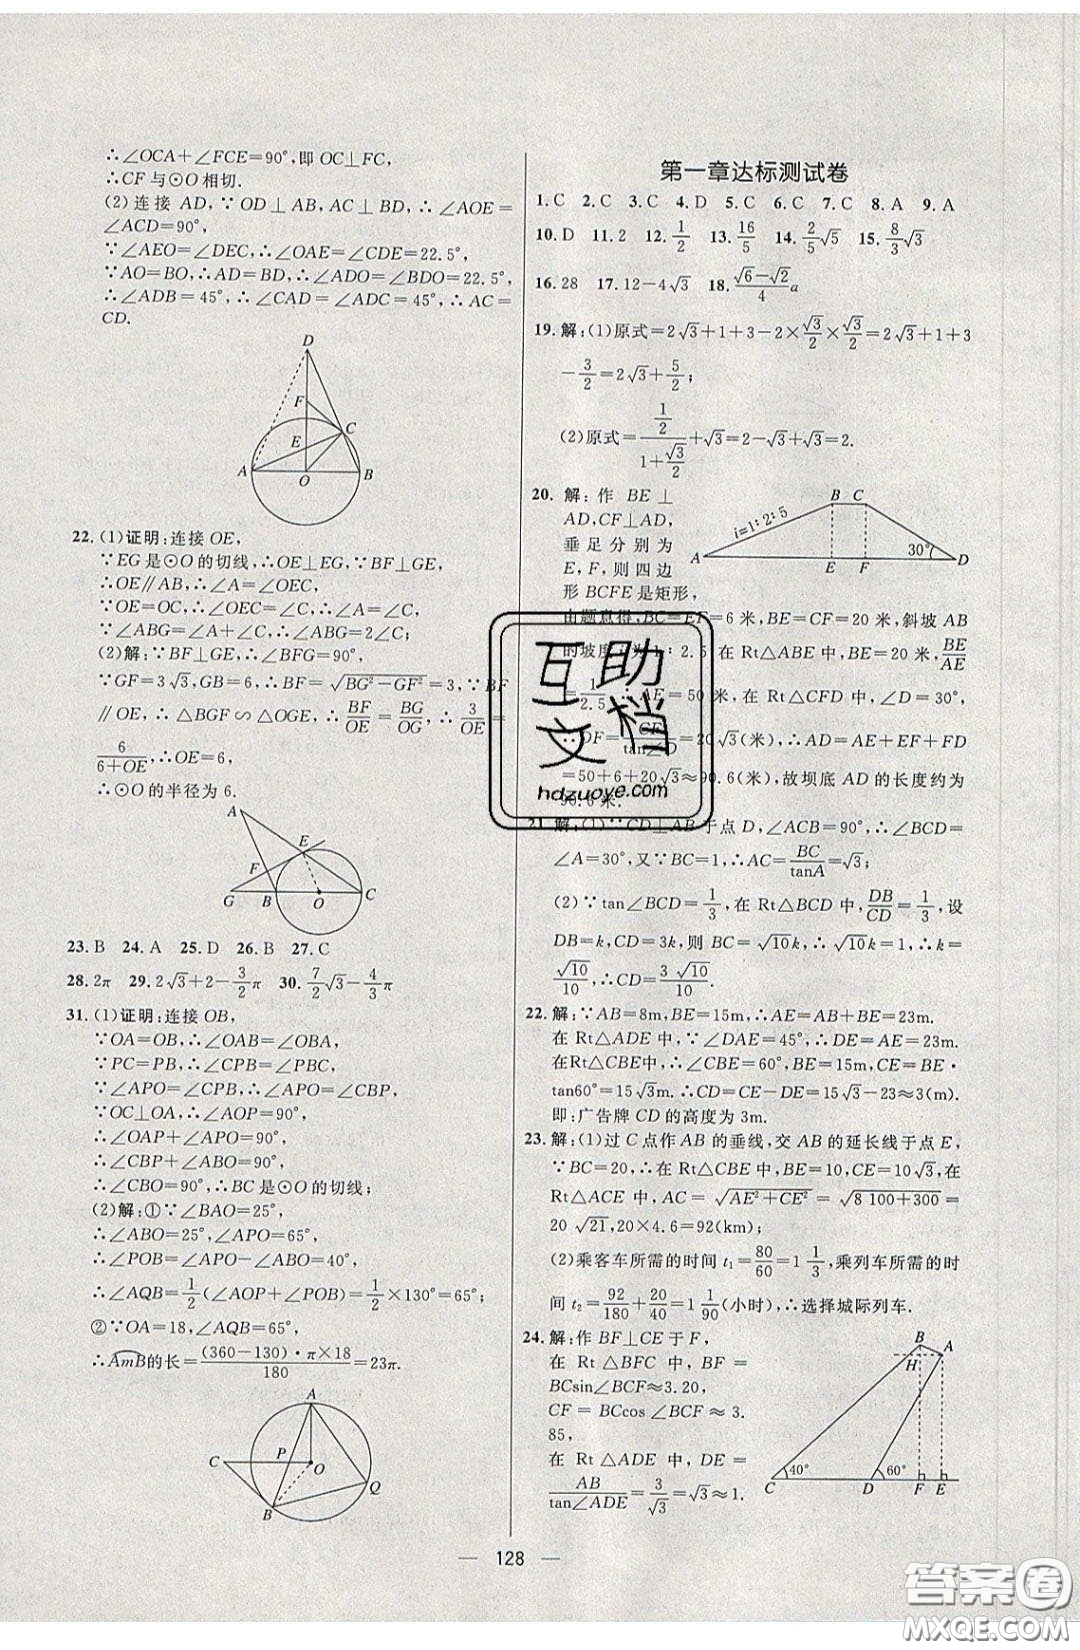 ∴∠OCA+∠FCE=90°,即 OC⊥FC,
∴CF 与⊙O 相切.
(2)连接 AD,∵OD⊥AB,AC⊥BD,∴∠AOE=
∠ACD=90°,
∵∠AEO=∠DEC,∴∠OAE=∠CDE=22.5°,
∵AO=BO,∴AD=BD,∴∠ADO=∠BDO=22.5°,
∴∠ADB=45°,∴∠CAD=∠ADC=45°,∴AC=
CD.
D
F
C
E
A
O
B
22.(1)证明:连接 OE,
∵EG是⊙O的切线,∴OE⊥EG,∵BF⊥GE,
∴OE∥AB,∴∠A=∠OEC,
∵OE=OC,∴∠OEC=∠C,∴∠A=∠C,
∵∠ABG=∠A+∠C,∴∠ABG=2∠C;
(2)解:∵BF⊥GE,∴∠BFG=90°,
∵GF=3√3,GB=6,∴BF=√(BG²-GF²)=3,∵BF
∥OE,∴△BGF∽△OGE,∴BF/OE=BG/OG,∴3/OE=
6/(6+OE),∴OE=6,
∴⊙O的半径为6.
A
E
F
G
B
O
C
23.B 24.A 25.D 26.B 27.C
28.2π 29.2√3+2-3/2π 30.7/2√3-4/3π
31.(1)证明:连接 OB,
∵OA=OB,∴∠OAB=∠OBA,
∵PC=PB,∴∠CPB=∠PBC,
∵∠APO=∠CPB,∴∠APO=∠CBP,
∵OC⊥OA,∴∠AOP=90°,
∴∠OAP+∠APO=90°,
∴∠CBP+∠ABO=90°,
∴∠CBO=90°,∴BC是⊙O的切线;
(2)解:①∵∠BAO=25°,
∴∠ABO=25°,∠APO=65°,
∴∠POB=∠APO-∠ABO=40°,
∴∠AQB=1/2(∠AOP+∠POB)=1/2×130°=65°;
②∵OA=18,∠AQB=65°,
∴AmB的长=(360-130)·π×18/180=23π.
A
C
P
O
Q
B
第一章达标测试卷
1.C 2.C 3.C 4.D 5.C 6.C 7.C 8.A 9.A
10.D 11.2 12.1/2 13.16/5 14.2/5√5 15.8/3√3
16.28 17.12-4√3 18.(√6-√2)/4a
19.解:(1)原式=2√3+1+3-2×√3/2×√3/2=2√3+1+3
-3/2=2√3+5/2;
(2)原式=(1/2)/(1+√3/2)+√3=2-√3+√3=2.
20.解:作 BE⊥
AD,CF⊥AD,
垂足分别为
E,F,则四边
形BCFE是矩形,
B C
i=1:2:5
30°
A
E F
D
由题意得,BC=EF=6米,BE=CF=20米,斜坡AB
的坡度 i 为1:2.5,在 Rt△ABE 中,∵BE=20米,BE/AE
=1/2.5,∴AE=50米,在 Rt△CFD 中,∠D=30°,
∴DF=CF/tan∠D=20√3(米),∴AD=AE+EF+FD
=50+6+20√3≈90.6(米),故坝底 AD 的长度约为
90.6米.
21.解:(1)∵CD⊥AB于点D,∠ACB=90°,∴∠BCD=
∠A=30°,又∵BC=1,∴AC=BC/tanA=√3;
(2)∵tan∠BCD=1/3,在 Rt△BCD中,DB/CD=1/3,设
DB=k,CD=3k,则 BC=√10k,∴√10k=1,∴k=
√10/10,∴CD=3√10/10.
22.解:∵AB=8m,BE=15m,∴AE=AB+BE=23m.
在 Rt△ADE中,∵∠DAE=45°,∴DE=AE=23m.
在Rt△CBE中,∴∠CBE=60°,BE=15m,∴CE=BE·
tan60°=15√3m.∴CD=CE-DE=15√3-23≈3(m).
即:广告牌CD的高度为3m.
23.解:(1)过C点作AB的垂线,交AB的延长线于点E,
∵BC=20,∴在 Rt△CBE中,BE=10,CE=10√3,在
Rt△ACE 中,AC=√(AE²+CE²)=√(8 100+300)=
20√21,20×4.6=92(km);
(2)乘客车所需的时间 t₁=80/60=1 1/3,乘列车所需的时
间 t₂=92/180+20/40=1 1/90(小时),∴选择城际列车.
24.解:作BF⊥CE于F,
在 Rt△BFC 中,BF=
BCsin∠BCF≈3.20,
CF=BCcos∠BCF≈3.
85,
在 Rt△ADE 中,DE=
AB/tan∠ADE=3/√3=√3≈1.
B
A
H
40°
60°
C
D
F E
128
互助
文档
hdzuoye.com
答案圈
MXQE.COM